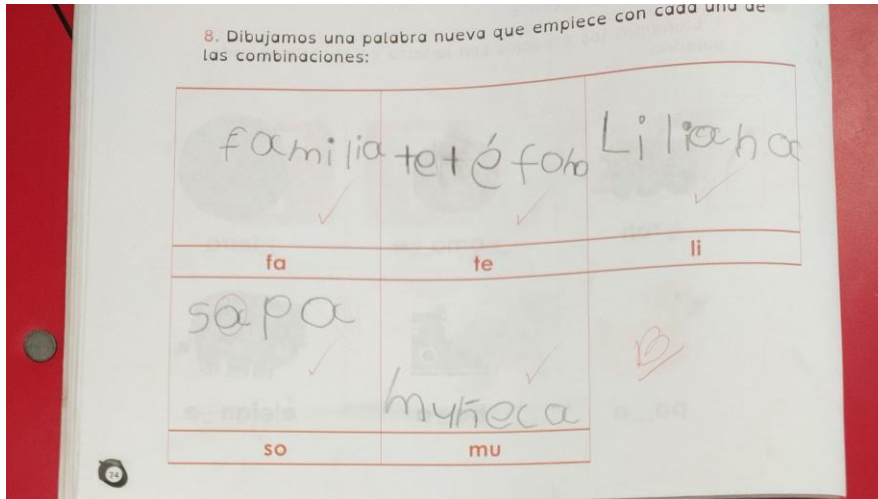 8. Dibujamos una palabra nueva que empiece con cada una de
las combinaciones:
familia tetéfono Liliana
fa te li
sapa
muñeca
so mu
B
24